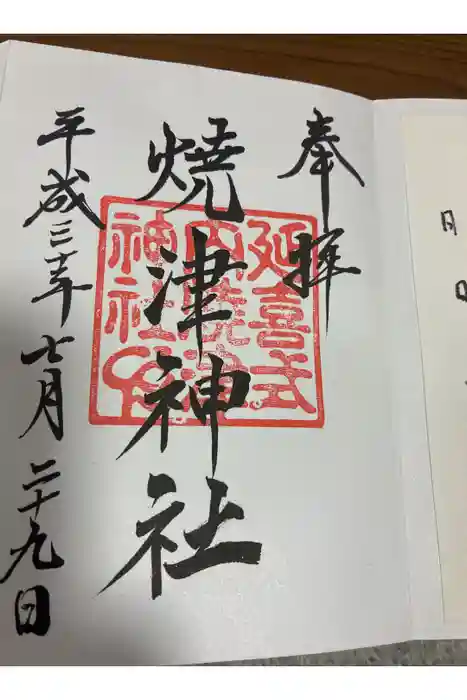 奉拝
延喜式
内焼津
神社印
焼津神社
平成三十年七月二十九日
月
日